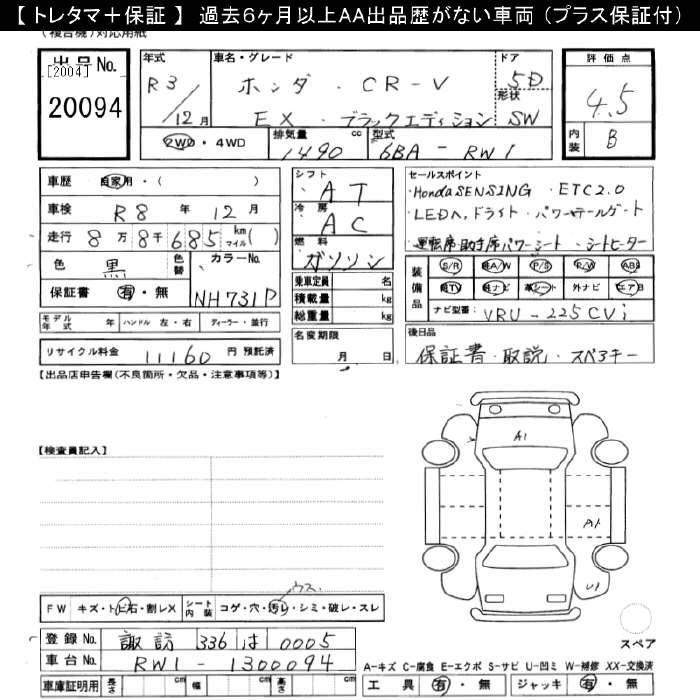 【 トレタマ＋保証 】 過去6ヶ月以上AA出品歴がない車両 （プラス保証付）
(複合機)対応用紙
出品No.
[2004]
20094
年式
R3/12月
車名・グレード
ホンダ・CR-V
EX・ブラックエディション
ドア
5D
形状
SW
評価点
4.5
内装
B
2WD・4WD
排気量
1490 cc
型式
6BA-RW1
車歴 自家用・( )
車検 R8 年 12 月
走行 8万8千685 km マイル( )
色 黒 色替
カラーNo.
NH731P
保証書 有・無
シフト
AT
冷房
AC
燃料
ガソリン
乗車定員 名
積載量 kg
総重量 kg
セールスポイント
・Honda SENSING ・ETC2.0
・LEDヘッドライト・パワーテールゲート
・運転席・助手席パワーシート・シートヒーター
装備品
S/R 純A/W P/S P/W ABS
純TV 純ナビ 革シート 外ナビ エアB
ナビ型番: VRU-225CVi
モデル年式 年 ハンドル 左・右 ディーラー・並行
リサイクル料金 11160 円 預託済
名変期限
月 日
後日品
保証書・取説・スペアキー
【出品店申告欄(不良箇所・欠品・注意事項等)】
【検査員記入】
A1
A1
U1
ウス
FW キズ・トビ石・割レX シート内装 コゲ・穴・汚レ・シミ・破レ・スレ
登録No. 諏訪 336 は 0005
車台No. RW1-1300094
スペア
A-キズ C-腐食 E-エクボ S-サビ U-凹ミ W-補修 XX-交換済
車庫証明用 長さ cm 幅 cm 高さ cm
工具 有・無 ジャッキ 有・無